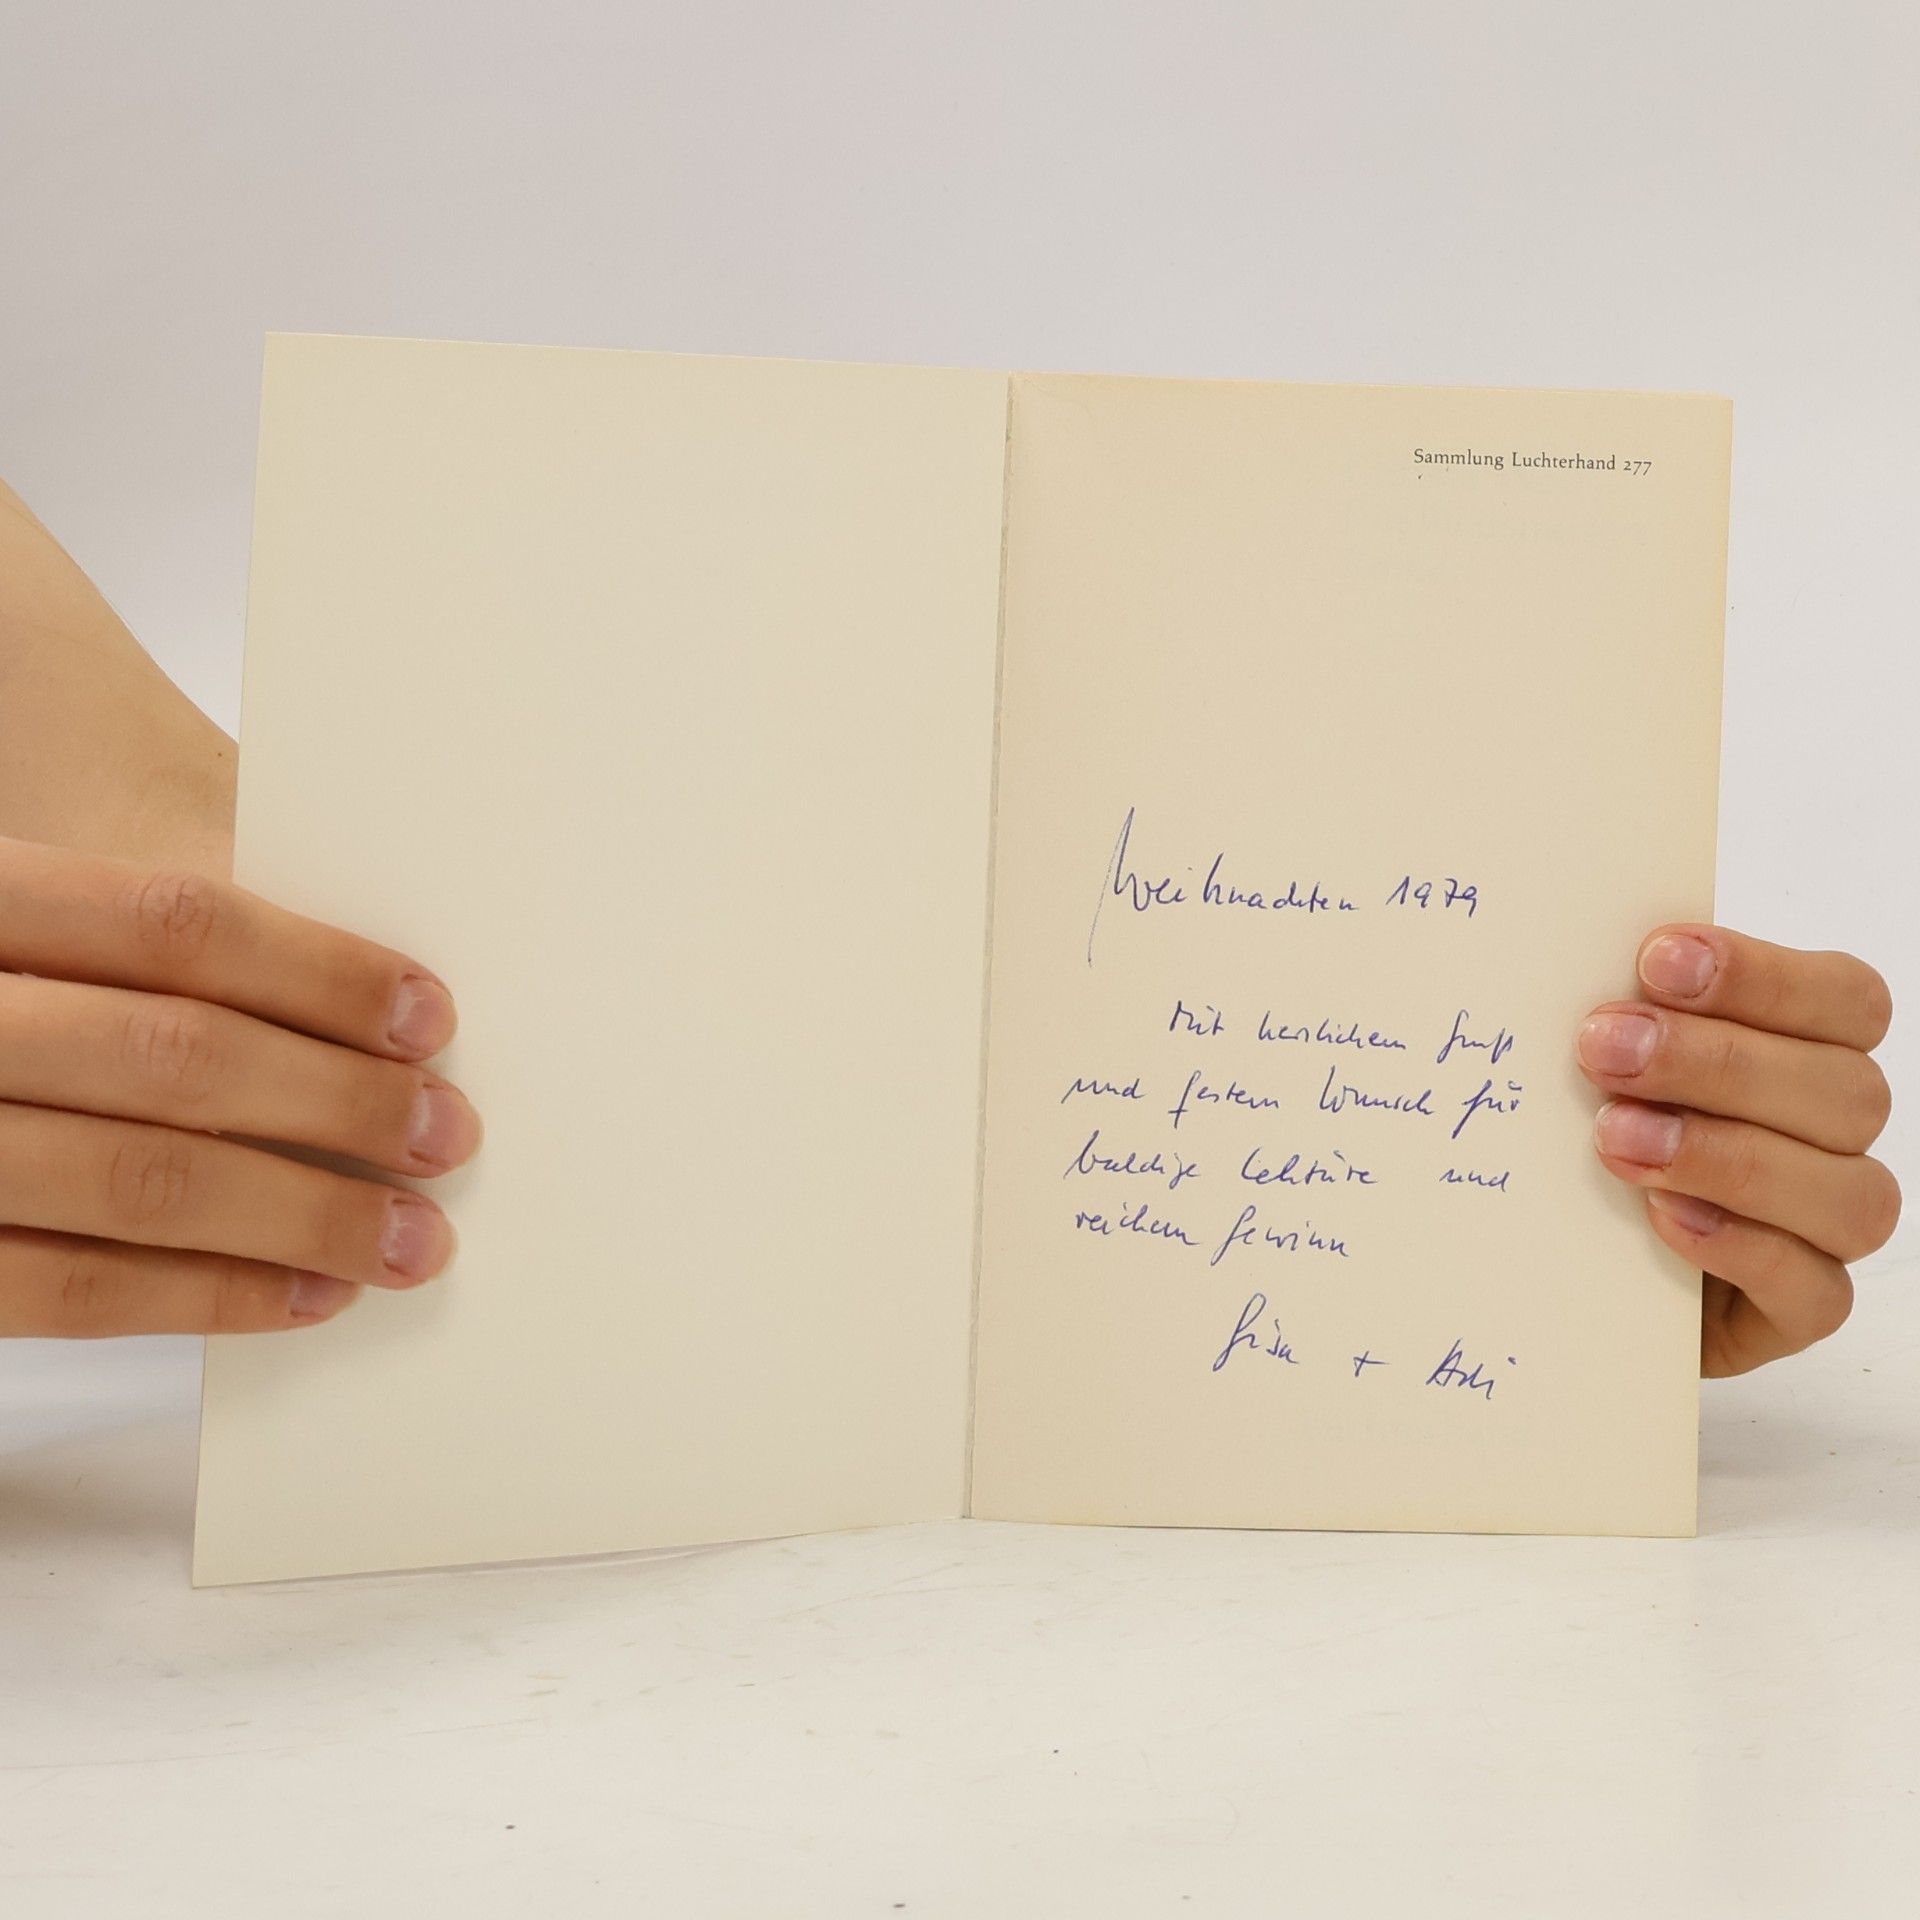 Sammlung Luchterhand 277
Weihnachten 1979
Mit herzlichem Gruß
und festem Wunsch für
baldige Lektüre und
reichem Gewinn
Gisa + Adi